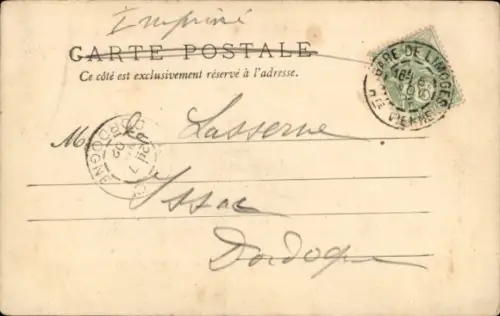 Imprimé
CARTE POSTALE
Ce côté est exclusivement réservé à l'adresse.
GARE DE LIMOGES
Hte VIENNE
M Lasserre
DORDOGNE
Issac
Dordogne